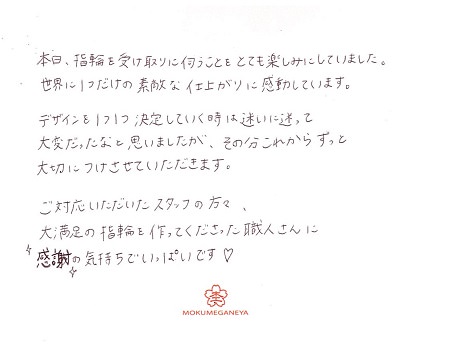 本日、指輪を受け取りに伺うことをとても楽しみにしていました。
世界に1つだけの素敵な仕上がりに感動しています。
デザインを1つ1つ決定していく時は迷いに迷って
大変だったなと思いましたが、その分これからずっと
大切につけさせていただきます。
ご対応いただいたスタッフの方々、
大満足の指輪を作ってくださった職人さんに
感謝の気持ちでいっぱいです♡
MOKUMEGANEYA